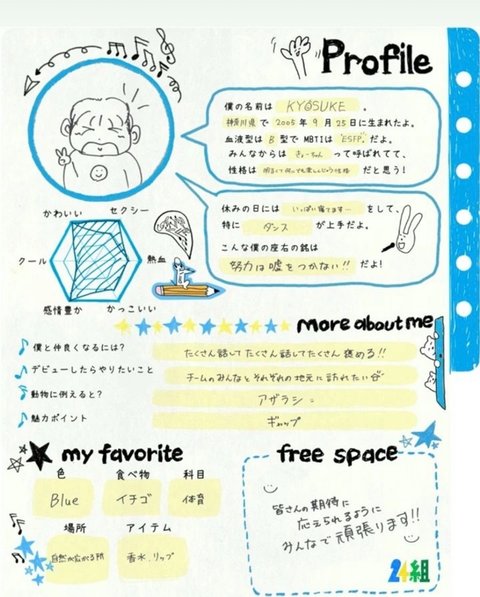 Profile
僕の名前は KYOSUKE 。
神奈川県 で 2005 年 9 月 25 日に生まれたよ。
血液型は B 型で MBTIは "ESFP" だよ。
みんなからは きょーちゃん って呼ばれてて、
性格は 明るくて何にでも楽しんじゃう性格 だと思う!
休みの日には いっぱい寝てます… をして、
特に ダンス が上手だよ。
こんな僕の座右の銘は
努力は嘘をつかない!! だよ!
かわいい
セクシー
クール
熱血
感情豊か
かっこいい
More about me
僕と仲良くなるには? たくさん話してたくさん話してたくさん褒める!!
デビューしたらやりたいこと チームのみんなとそれぞれの地元に訪れたい
動物に例えると? アザラシ
魅力ポイント ギャップ
my favorite
色 食べ物 科目
Blue イチゴ 体育
場所 アイテム
自然が広がる所 香水、リップ
free space
皆さんの期待に
応えられるように
みんなで頑張ります!!
24組